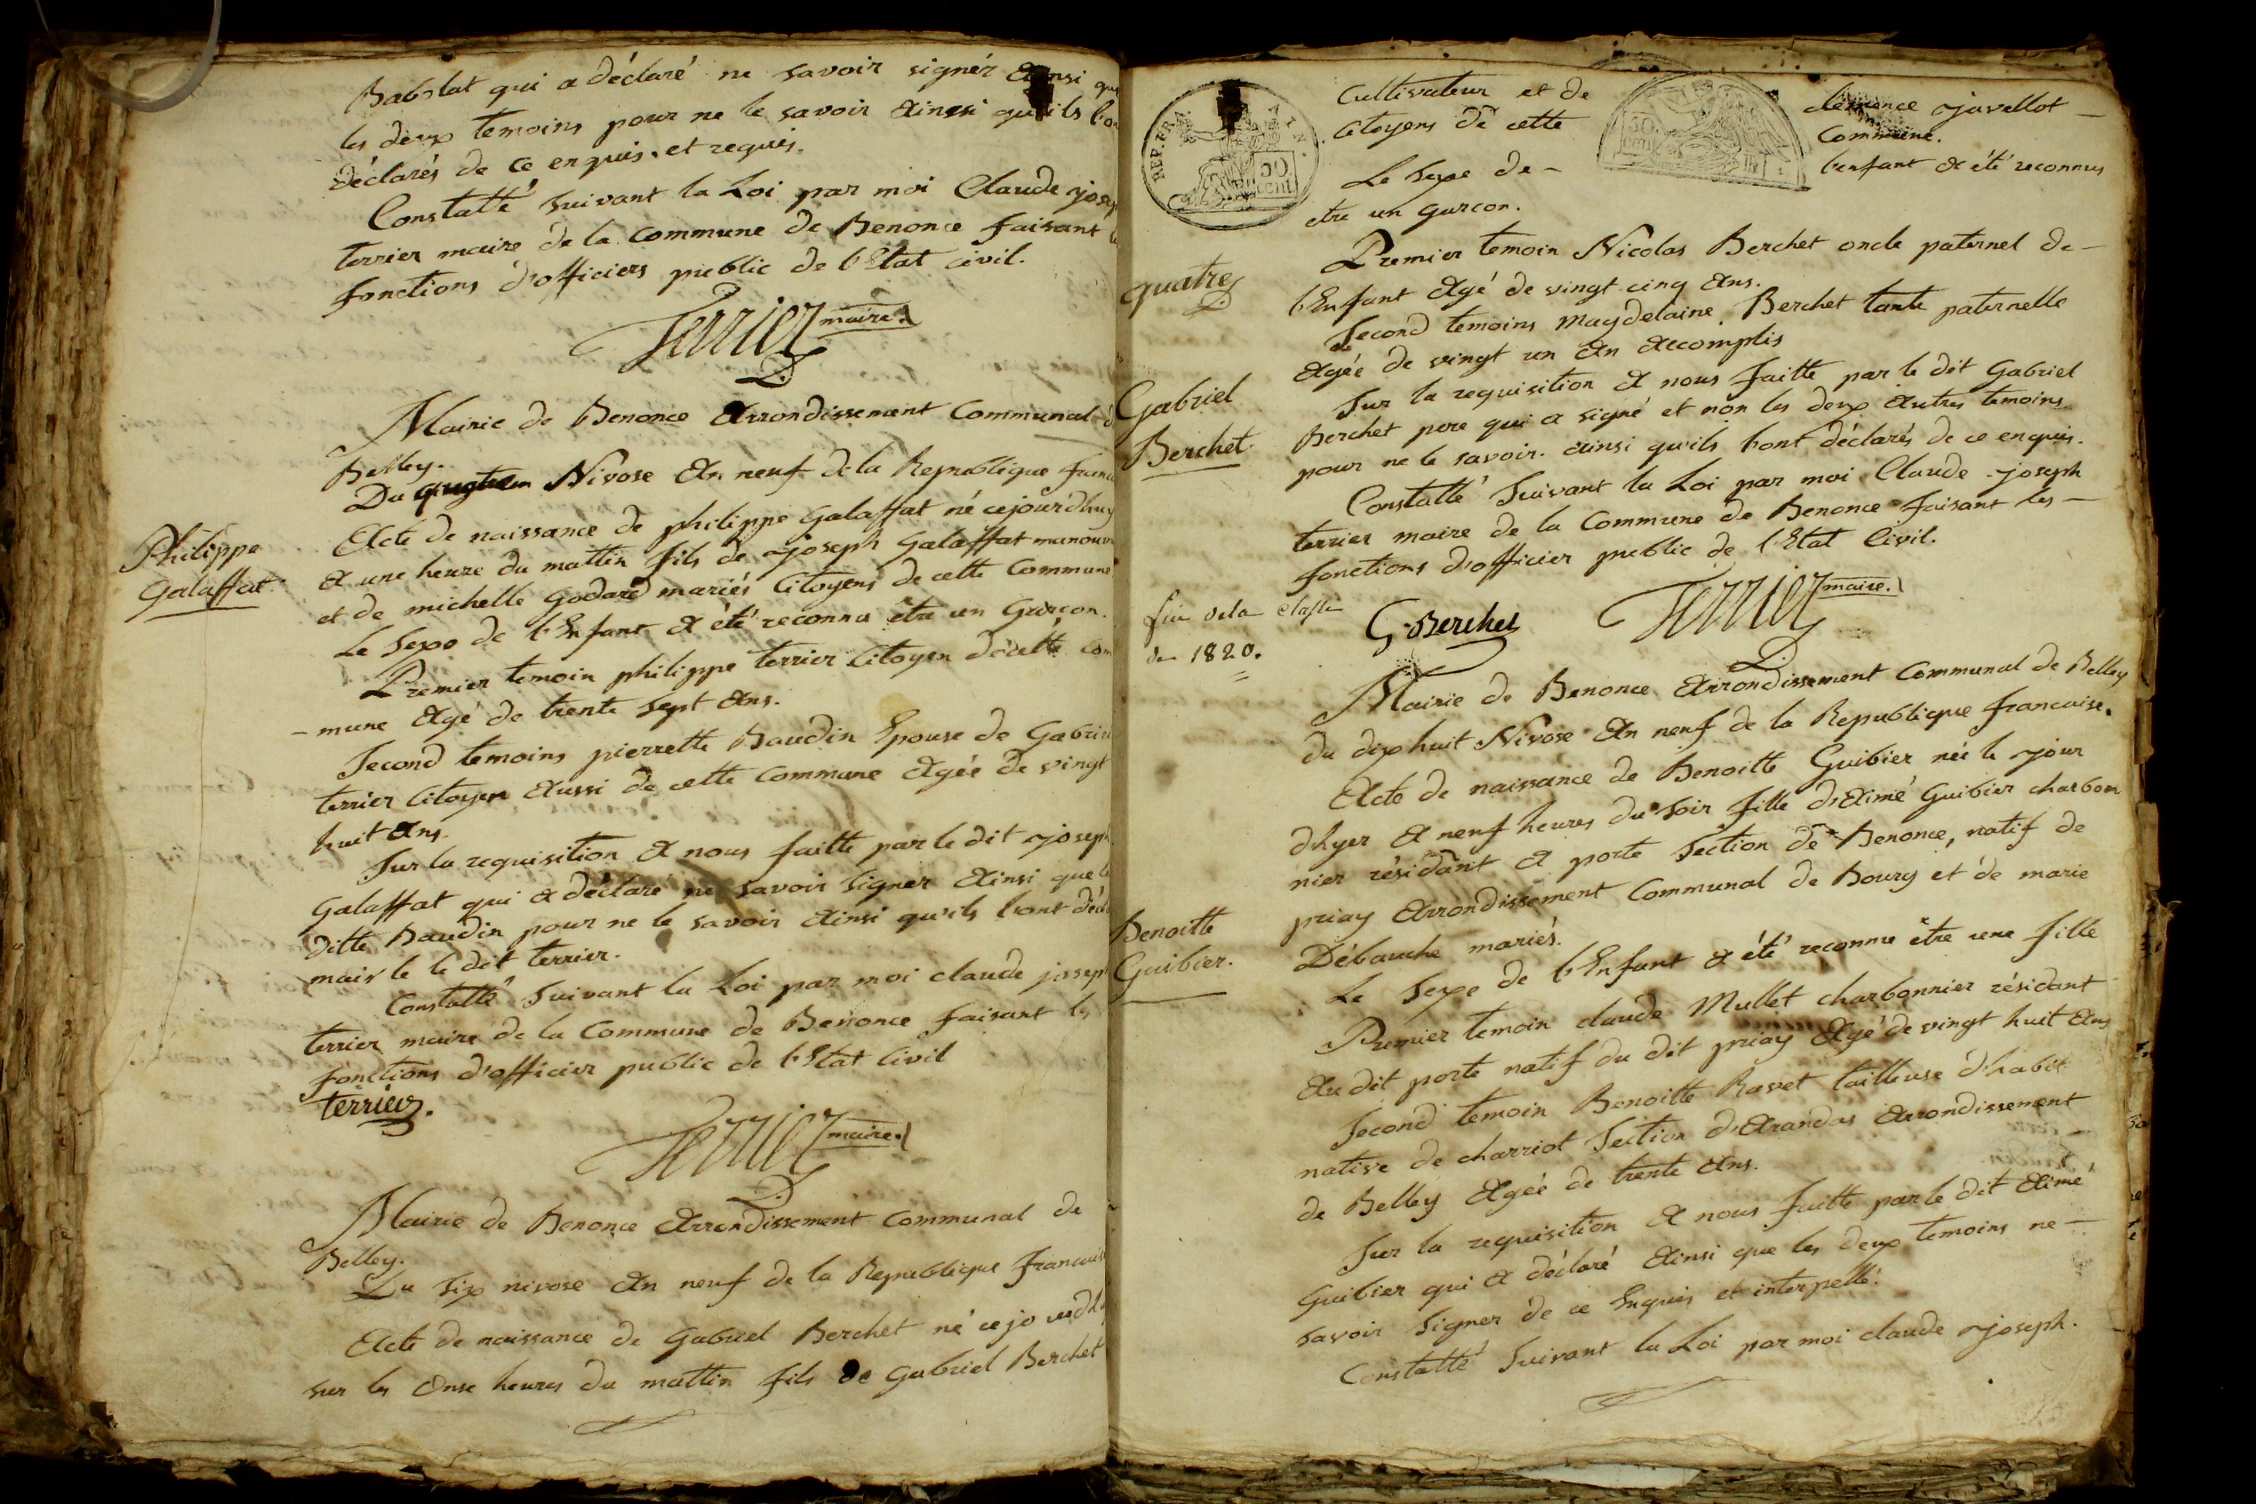 Babolat qui a déclaré ne savoir signér ainsi que
les deux temoins pour ne le savoir ainsi qu'ils l'on
déclarés de ce enquis et requis.
Constatté suivant la Loi par moi Claude josep
terrier maire de la Commune de Benonce faisant
fonctions d'officiers public de l'Etat civil.
Terrier maire.
Mairie de Benonce Arrondissement Communal d
Belley.
Du quatre Nivose An neuf de la Republique franca
Philippe
Galaffat
Acte de naissance de philippe Galaffat né cejourdhuy
a une heure du mattin fils de joseph Galaffat manouv
et de michelle Godard mariés Citoyens de cette Commune
Le Sexe de l'Enfant a été reconnu être un Garçon.
Premier temoin philippe terrier Citoyen de cette com
-mune Agé de trente sept Ans.
Second temoins pierrette Baudin Epouse de Gabriel
terrier Citoyen Aussi de cette Commune Agée de vingt
huit Ans.
Sur la requisition a nous faitte par le dit joseph
Galaffat qui a déclaré ne savoir signer Ainsi que l
ditte Baudin pour ne le savoir Ainsi qu'ils l'ont décl
mais le le dit terrier.
Constatté Suivant la Loi par moi claude joseph
terrier maire de la Commune de Benonce faisant les
fonctions d'officier public de l'Etat Civil
terrier.
Terrier maire.
Mairie de Benonce Arrondissement Communal de
Belley.
Du six nivose An neuf de la Republique francaise
Acte de naissance de Gabriel Berchet né cejourdh
sur les Onse heures du mattin fils de Gabriel Berchet
REP. FRA.
50
cent
Cultivateur et de clemence javellot
Citoyens de cette Commune.
Le Sexe de - l'enfant a été reconnus
etre un garcon.
quatre
Premier temoin Nicolas Berchet oncle paternel de -
l'Enfant Agé de vingt cinq Ans.
Second temoins Magdelaine Berchet tante paternelle
Agée de vingt un An Accomplis
Gabriel
Berchet
Sur la requisition a nous faitte par le dit Gabriel
Berchet pere qui a signé et non les deux Autres temoins
pour ne le savoir. ainsi qu'ils l'ont déclarés de ce enquis.
Constatté Suivant la Loi par moi Claude joseph
terrier maire de la Commune de Benonce faisant les -
fonctions d'officier public de l'Etat Civil.
fin de la classe
de 1820.
G. Berchet
Terrier maire.
Mairie de Benonce Arrondissement Communal de Belley
du dix huit Nivose An neuf de la Republique francaise.
Acte de naissance de Benoitte Guibier née le jour
dhyer a neuf heures du soir fille d'Aimé Guibier charbon
nier résidant a porte Section de Benonce, natif de
priay Arrondissement Communal de Bourg et de marie
Débauche mariés.
Benoitte
Guibier.
Le Sexe de l'Enfant a été reconnu être une fille
Premier temoin claude Mullet charbonnier résidant
Au dit porte natif du dit priay Agé de vingt huit Ans
Second temoin Benoitte Ravet tailleuse d'habit
native de charriot Section d'Arandas Arrondissement
de Belley Agée de trente Ans.
Sur la requisition a nous faitte par le dit Aimé
Guibier qui a déclaré Ainsi que les deux temoins ne -
savoir Signer de ce Enquis et interpellé.
Constatté Suivant la Loi par moi claude joseph.